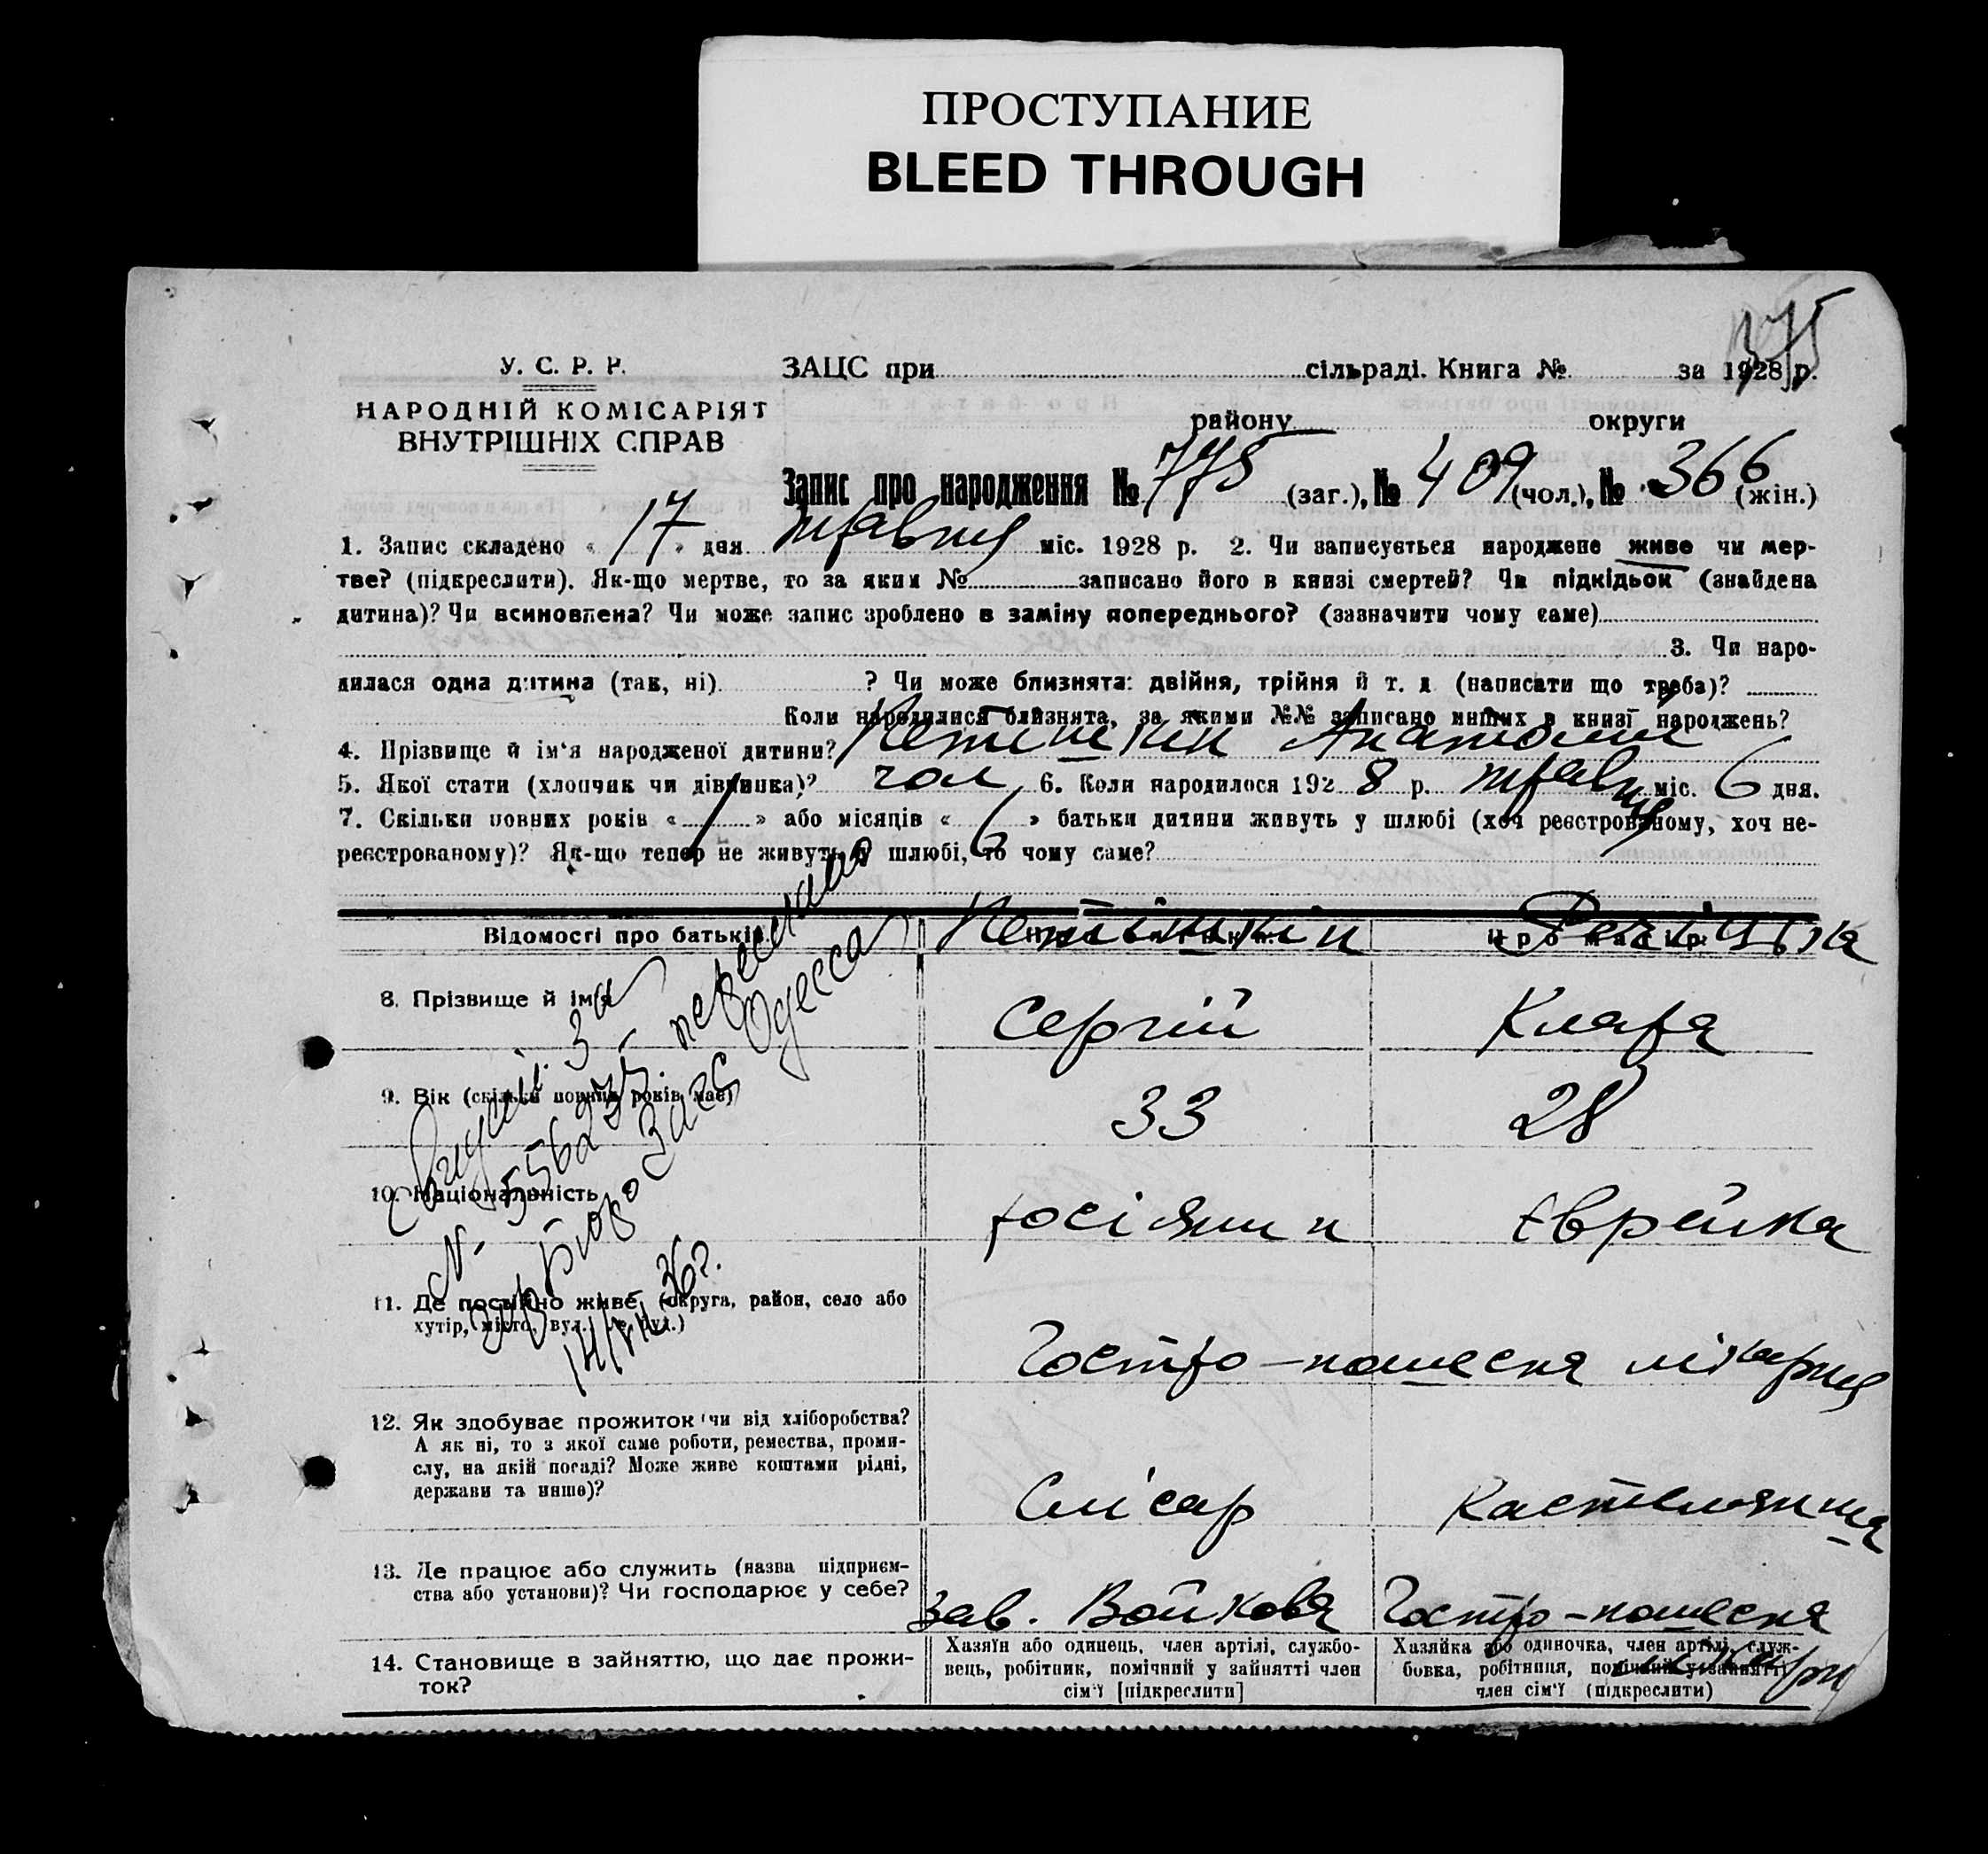 ПРОСТУПАНИЕ
BLEED THROUGH
375
У. С. Р. Р.
НАРОДНІЙ КОМІСАРІЯТ
ВНУТРІШНІХ СПРАВ
ЗАЦС при сільраді. Книга № за 1928 р.
району округи
Запис про народження № 775 (заг.), № 409 (чол.), № 366 (жін.)
1. Запис складено « 17 » дня травня міс. 1928 р. 2. Чи записується народжене живе чи мер-
тве? (підкреслити). Як-що мертве, то за яким № записано його в книзі смертей? Чи підкідьок (знайдена
дитина)? Чи всиновлена? Чи може запис зроблено в заміну попереднього? (зазначити чому саме)
3. Чи наро-
дилася одна дитина (так, ні) ? Чи може близнята: двійня, трійня й т. д (написати що треба)?
Коли народилися близнята, за якими №№ записано инших в книзі народжень?
4. Прізвище й ім'я народженої дитини? Анатолій
5. Якої стати (хлопчик чи дівчинка)? чол 6. Коли народилося 1928 р. травня міс. 6 дня.
7. Скільки повних років « 1 » або місяців « 6 » батьки дитини живуть у шлюбі (хоч реєстрованому, хоч не-
реєстрованому)? Як-що тепер не живуть у шлюбі, то чому саме?
Відомості про батьків. Про батька Про матір
8. Прізвище й ім'я
Сергій Клара
9. Вік (скільки повних років має)
33 28
10. Національність
росіянин Єврейка
11. Де постійно живе (округа, район, село або
хутір, місто, вул. )
Гостро-пошесня лікарня
12. Як здобуває прожиток чи від хліборобства?
А як ні, то з якої саме роботи, ремества, проми-
слу, на якій посаді? Може живе коштами рідні,
держави та инше)?
Слісар Кастелянша
13. Де працює або служить (назва підприєм-
ства або установи)? Чи господарює у себе?
зав. Войкова Гостро-пошесня
лікарн
14. Становище в зайняттю, що дає прожи-
ток?
Хазяїн або одинець, член артілі, службо-
вець, робітник, помічний у зайнятті член
сім'ї [підкреслити]
Хазяйка або одиночка, член артілі, служ-
бовка, робітниця, помічний у зайнятті
член сім'ї (підкреслити)
Одесса